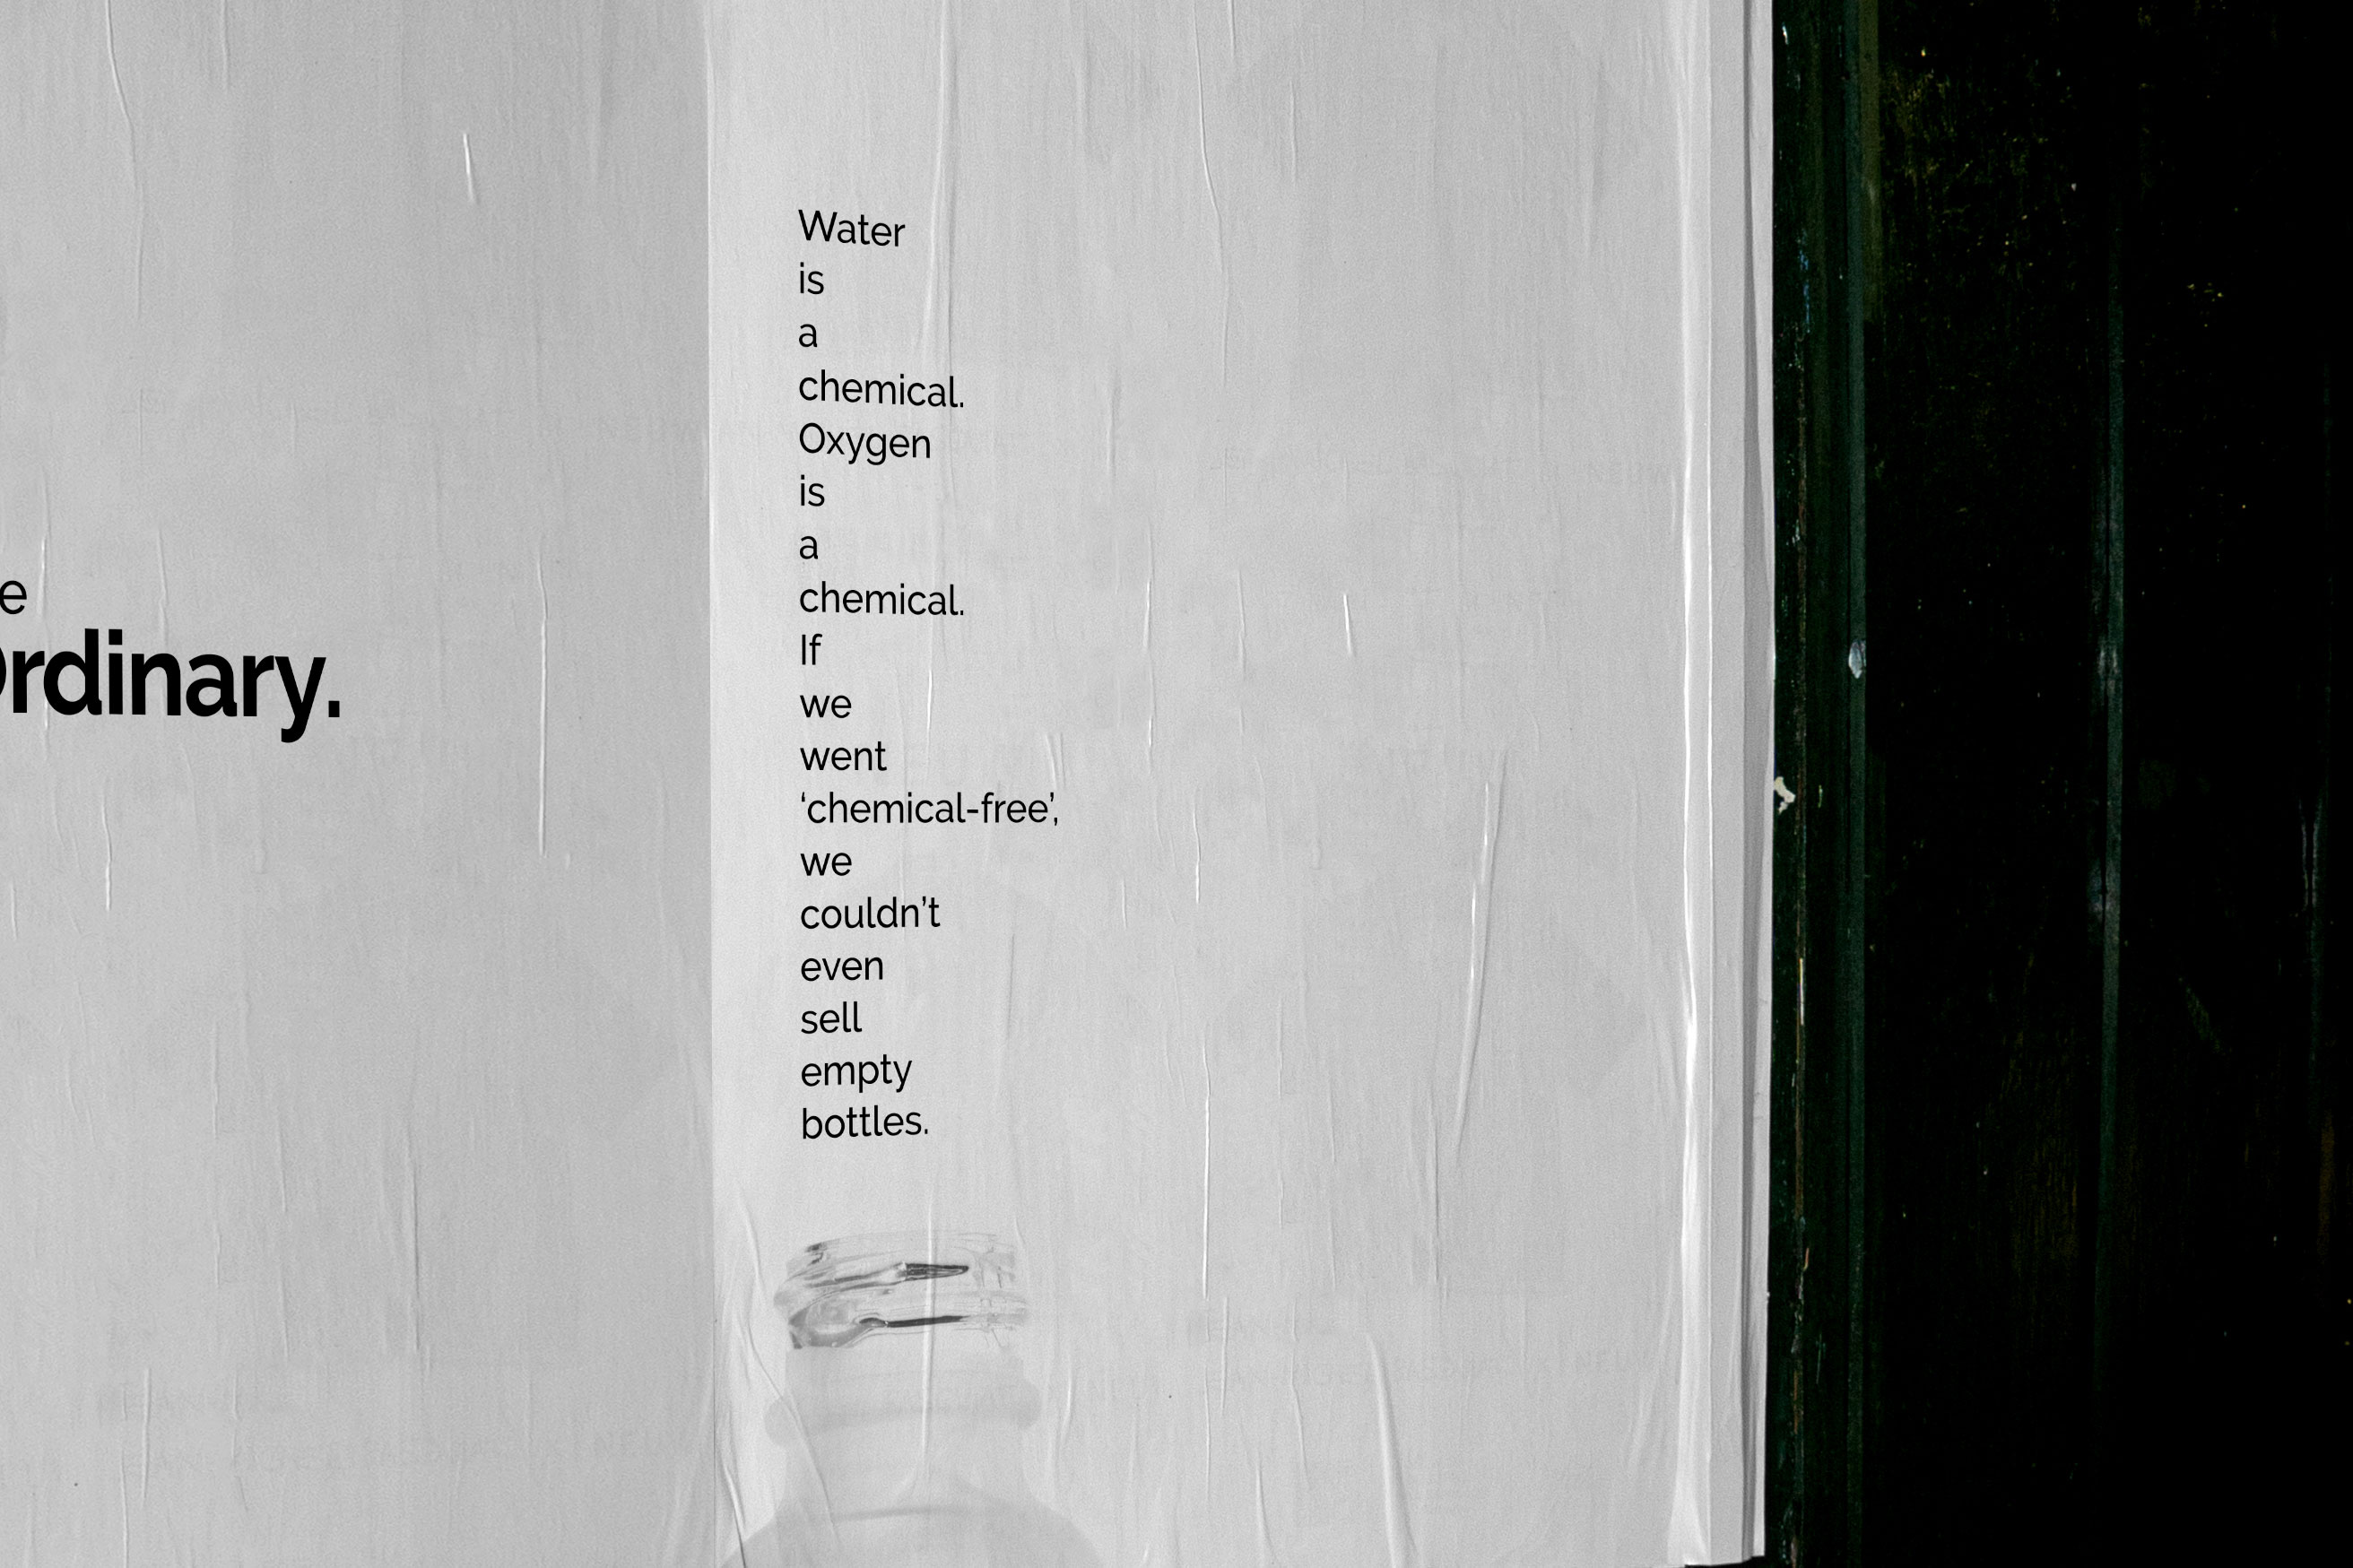 e
Ordinary.
Water
is
a
chemical.
Oxygen
is
a
chemical.
If
we
went
‘chemical-free’,
we
couldn’t
even
sell
empty
bottles.